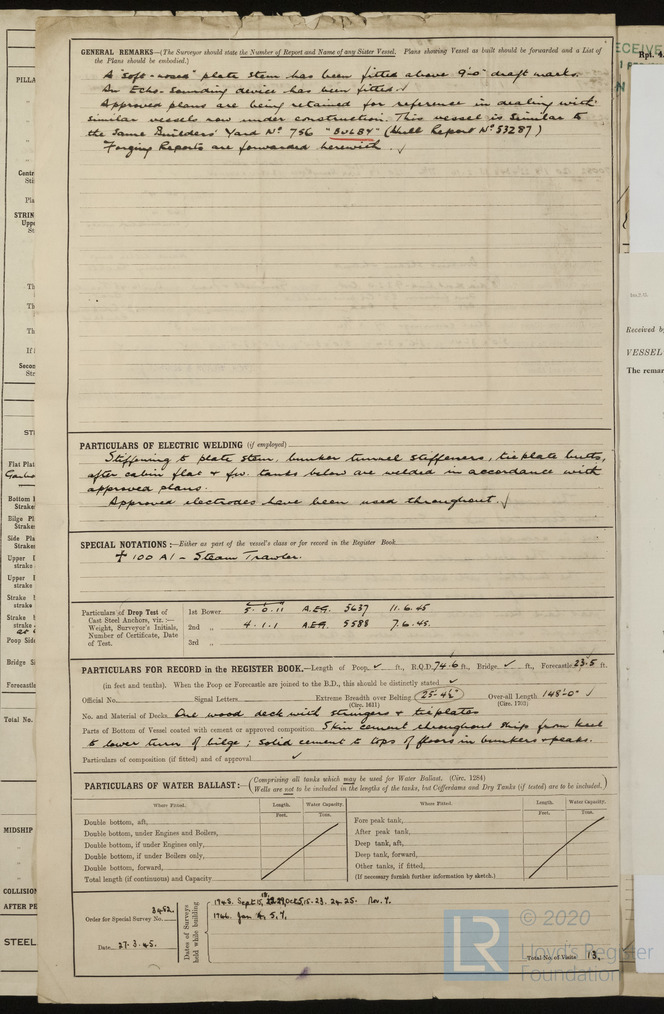 GENERAL REMARKS—(The Surveyor should state the Number of Report and Name of any Sister Vessel. Plans showing Vessel as built should be forwarded and a List of
the Plans should be embodied.)
A "soft-nosed" plate stem has been fitted above 9'-0" draft marks.
An Echo-sounding device has been fitted. ✓
Approved plans are being retained for reference in dealing with
similar vessels now under construction. This vessel is similar to
the same Builders' Yard No 756 "BULBY" (Hull Report No 53287)
Forging Reports are forwarded herewith. ✓
PARTICULARS OF ELECTRIC WELDING (if employed)
Stiffening to plate stem, bunker tunnel stiffeners, tieplate butts,
after cabin flat & fw. tanks below are welded in accordance with
approved plans.
Approved electrodes have been used throughout. ✓
SPECIAL NOTATIONS:—Either as part of the vessel's class or for record in the Register Book
✠ 100 A1 - Steam Trawler.
Particulars of Drop Test of
Cast Steel Anchors, viz.:—
Weight, Surveyor's Initials,
Number of Certificate, Date
of Test.
1st Bower 5. 0. 11 A.E.G. 5637 11. 6. 45
2nd „ 4. 1. 1 A.E.G. 5588 7. 6. 45.
3rd „
PARTICULARS FOR RECORD in the REGISTER BOOK.—Length of Poop ✓ ft., R.Q.D. 74.6 ft., Bridge ✓ ft., Forecastle 23.5 ft.
(in feet and tenths). When the Poop or Forecastle are joined to the B.D., this should be distinctly stated ✓
Official No. Signal Letters Extreme Breadth over Belting 25'-4½" Over-all Length 148'-0" ✓
(Circ. 1611) (Circ. 1703)
No. and Material of Decks One wood deck with stringers & tieplates
Parts of Bottom of Vessel coated with cement or approved composition Skin cement throughout ship from keel
to lower turn of bilge; solid cement to tops of floors in bunkers & peaks.
Particulars of composition (if fitted) and of approval ✓
PARTICULARS OF WATER BALLAST:—(Comprising all tanks which may be used for Water Ballast. (Circ. 1284)
Wells are not to be included in the lengths of the tanks, but Cofferdams and Dry Tanks (if tested) are to be included.)
Where Fitted. Length. Water Capacity. Where Fitted. Length. Water Capacity.
Feet. Tons. Feet. Tons.
Double bottom, aft, Fore peak tank,
Double bottom, under Engines and Boilers, After peak tank,
Double bottom, if under Engines only, Deep tank, aft,
Double bottom, if under Boilers only, Deep tank, forward,
Double bottom, forward, Other tanks, if fitted,
Total length (if continuous) and Capacity (If necessary furnish further information by sketch.)
Order for Special Survey No. 3462
Date 27. 3. 45.
Dates of Surveys
held while building
1945. Sept 15, Oct 5, 15. 23. 24. 25. Nov. 7.
1946. Jan 5, 7.
Total No. of Visits 13.
© 2020
LR
Lloyd's Register
Foundation
Rpt. 4
Received b
VESSEL
The remar